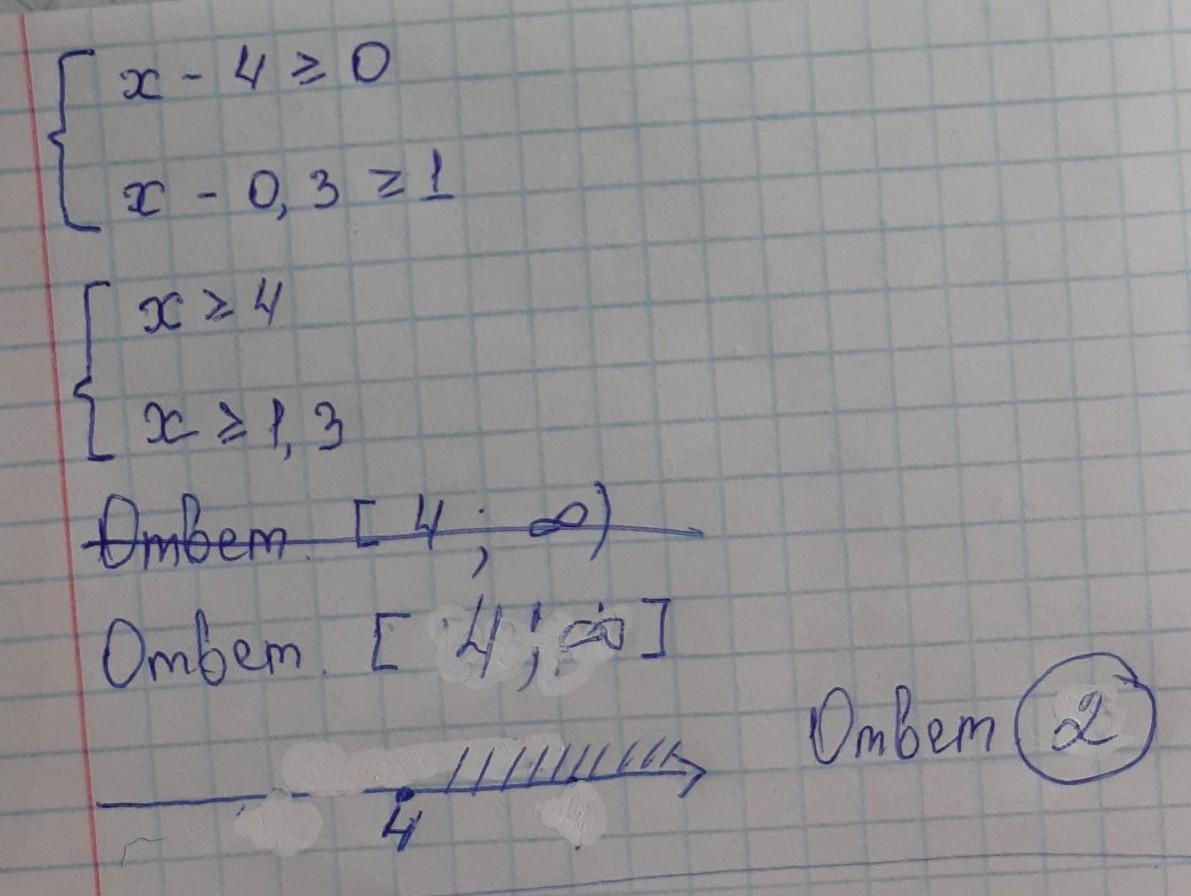 x - 4 ≥ 0
x - 0,3 ≥ 1
x ≥ 4
x ≥ 1,3
Ответ. [ 4 ; ∞)
Ответ. [ 4 ; ∞ ]
Ответ 2
4